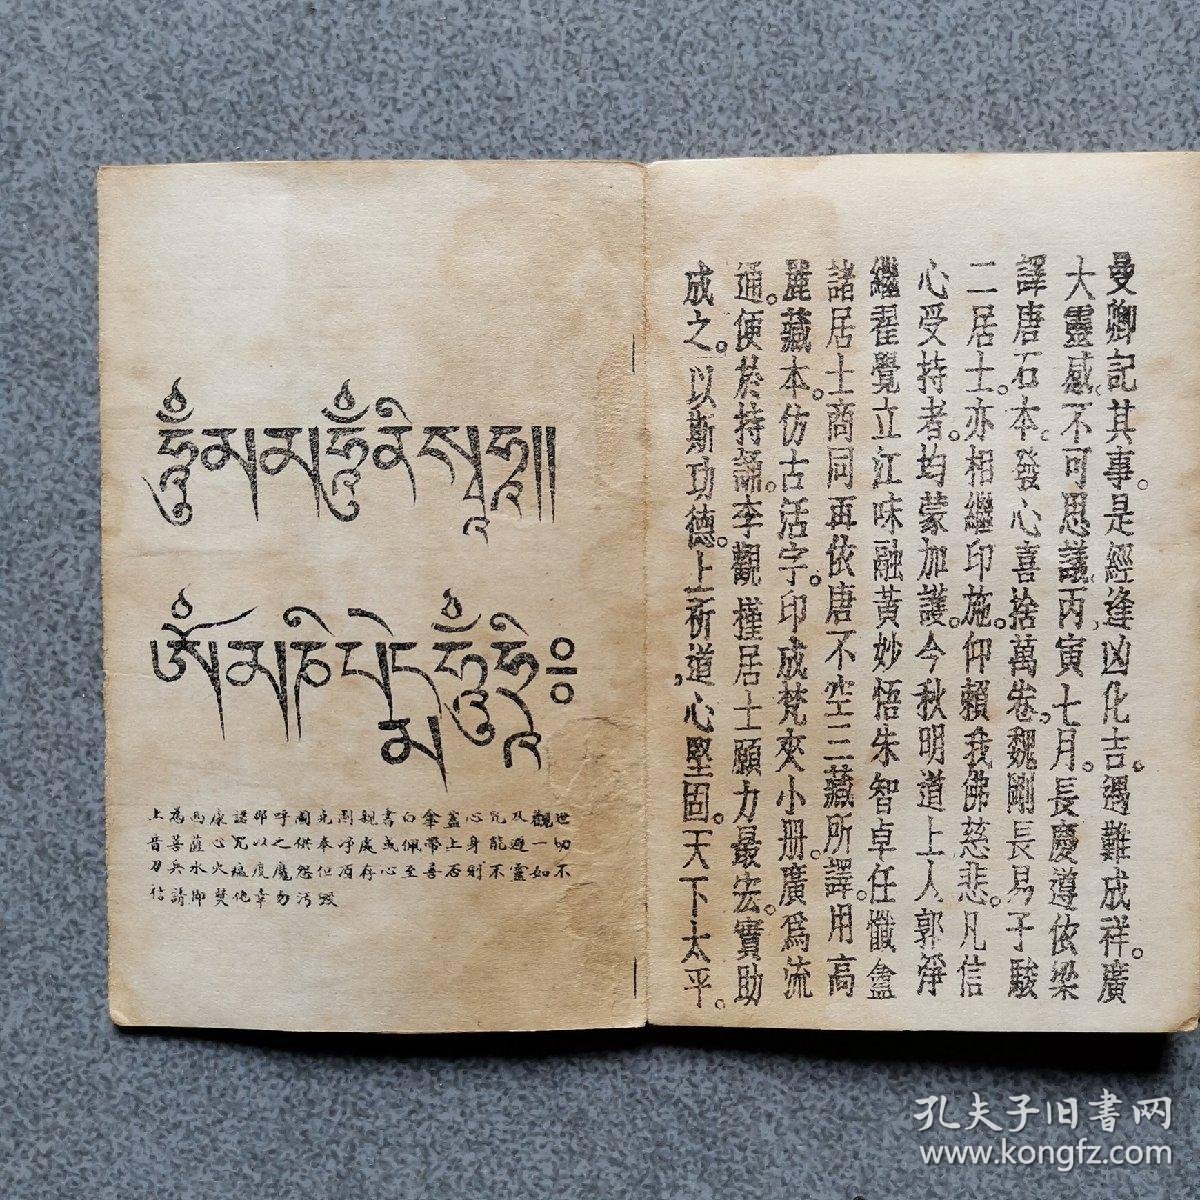 曼卿記其事。是經逢凶化吉。遇難成祥。廣
大靈感、不可思議、丙寅七月。長慶遵依梁
譯唐石本。發心喜捨萬卷。魏剛長易子駿
二居士。亦相繼印施。仰賴我佛慈悲。凡信
心受持者。均蒙加護。今秋明道上人郭淨
繼翟覺立江味融黃妙悟朱智卓任懺盦
諸居士商同再依唐不空三藏所譯。用高
麗藏本。仿古活字。印成梵夾小冊。廣爲流
通。便於持誦。李觀槿居士願力最宏。實助
成之。以斯功德。上祈、道心堅固。天下太平。
ཧཱུྃ་མ་མ་ཧཱུྃ་ནི་སྭཱ་ཧཱ།།
ཨོཾ་མ་ཎི་པདྨེ་ཧཱུྃ་ཧྲཱིཿ
上為西康諾那呼圖克圖親書白傘蓋心咒及觀世
音菩薩心咒以之供奉淨處或佩帶上身能避一切
刀兵水火瘟疫魔怨但須存心至善否則不靈如不
信請即焚化幸勿污毀
孔夫子旧書网
www.kongfz.com